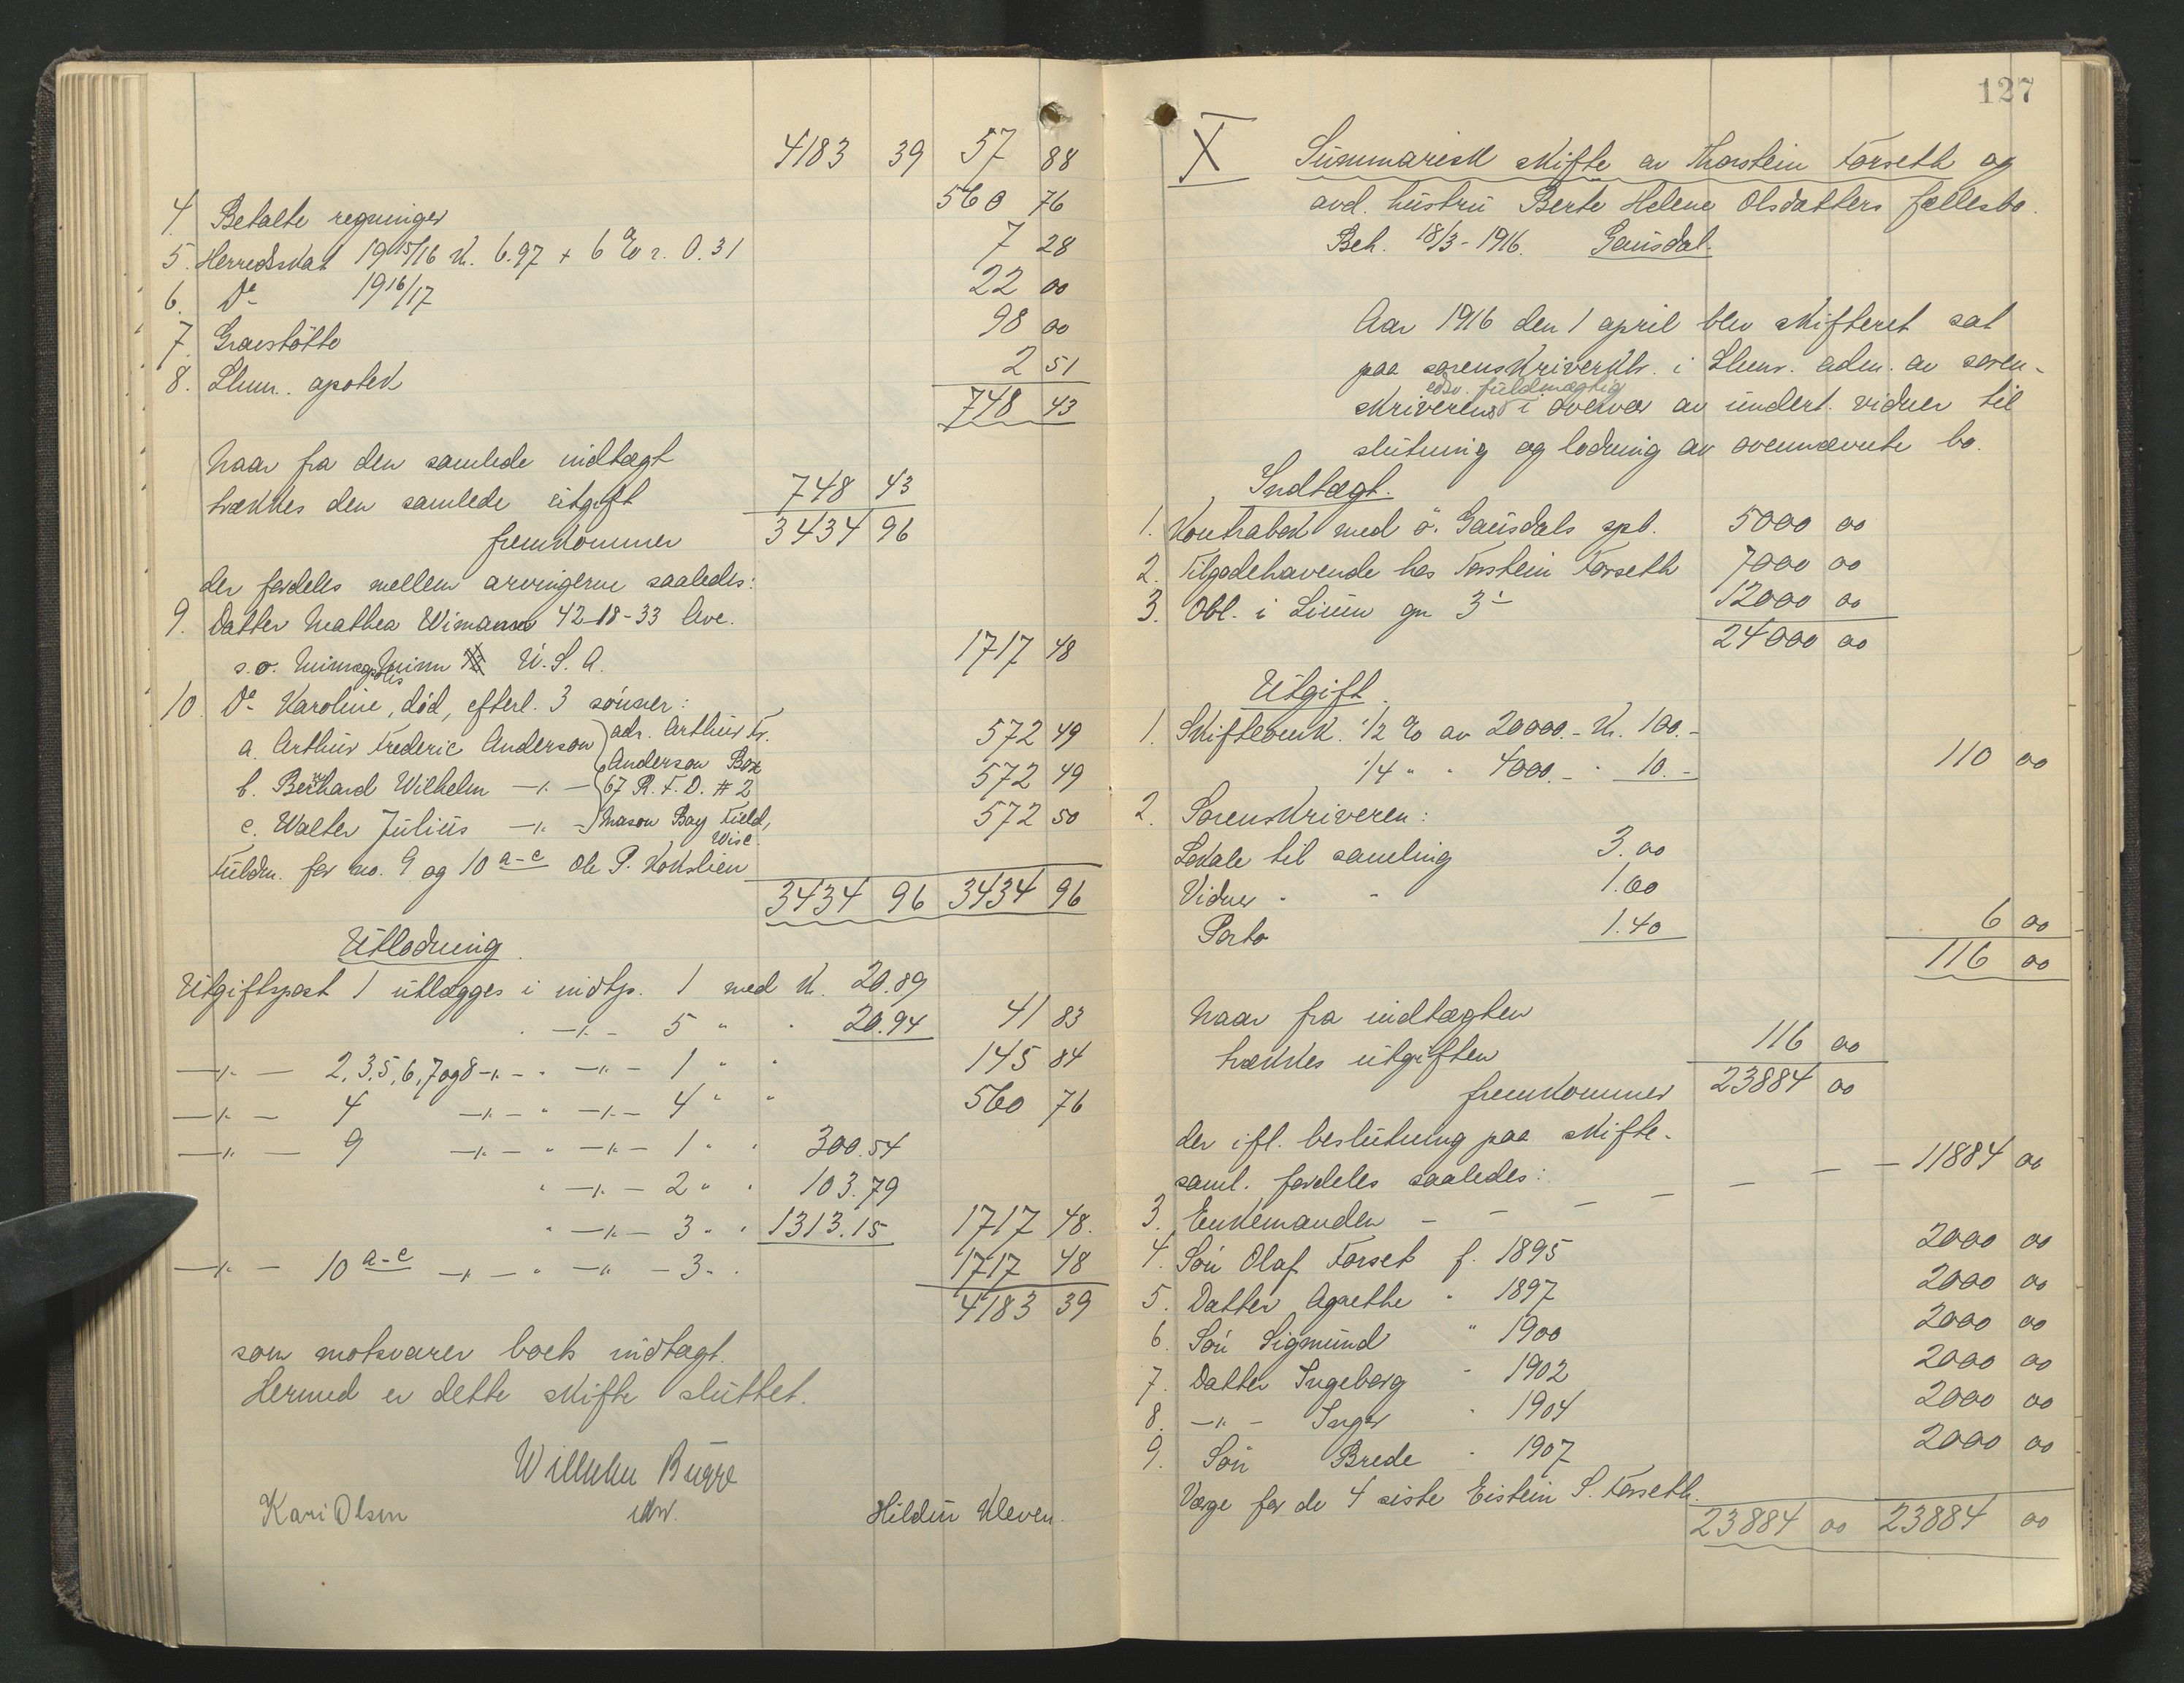 4183 39 57 88
4. Betalte regninger 560 76
5. Herredskat 1915/16 k. 6.97 + 6 % r. 0.31 7 28
6. Do 1916/17 22 00
7. Gravstötte 98 00
8. Lhmr. apotek 2 51
748 43
Naar fra den samlede indtægt
trækkes den samlede utgift 748 43
fremkommer 3434 96
der fordeles mellem arvingerne saaledes:
9. Datter Mathea Wimann 42-18-33 Ave.
s.o. Minneapolis Minn U.S.A. 1717 48
10. Do Karoline, död, efterl. 3 sönner:
a. Arthur Frederic Anderson adr. Arthur Fr. 572 49
b. Bernhard Wilhelm -"- Anderson Box 67 R.F.D. #2 572 49
c. Walter Julius -"- Mason Bay Field, Wisc. 572 50
Fuldm. for no. 9 og 10 a-c Ole P. Kokslien
3434 96 3434 96
Utlodning
Utgiftspost 1 utlægges i indtp. 1 med k. 20.89
" -"- 5 " " 20.94 41 83
-"- 2,3,5,6,7 og 8 -"- " -"- 1 " " 145 84
-"- 4 -"- " -"- 4 " " 560 76
-"- 9 -"- " -"- 1 " " 300.54
" -"- 2 " " 103.79
" -"- 3 " " 1313.15 1717 48.
-"- 10 a-c -"- " -"- 3 " " 1717 48
4183 39
som motsvarer boets indtægt.
Hermed er dette skifte sluttet.
Wilhelm Bugge
Kari Olsen Hildur Kleven.
127
X Summarisk skifte av Thorstein Forseth og
avd. hustru Berte Helene Olsdatters fællesbo.
Beh. 18/3-1916. Gausdal.
Aar 1916 den 1 april blev skifteret sat
paa sorenskriverktr. i Lhmr. adm. av soren-
edsv. fuldmægtig
skriverens i overvær av undert. vidner til
slutning og lodning av ovennævnte bo.
Indtægt.
1. Kontrabok med ö. Gausdals spb. 5000 00
2. Tilgodehavende hos Torstein Forseth 7000 00
3. Obl. i Linim gn 3 1 12000 00
24000 00
Utgift.
1. Skiftebeh. 1/2 % av 20000.- k. 100.-
1/4 " " 4000.- " 10.- 110 00
2. Sorenskriveren:
Lokale til samling 3.00
Vidner " " 1.60
Porto 1.40 6 00
116 00
Naar fra indtægten
trækkes utgiften 116 00
fremkommer 23884 00
der ifl. beslutning paa skifte-
saml. fordeles saaledes:
3. Enkemanden - - - - - - 11884 00
4. Sön Olaf Forset f. 1895 2000 00
5. Datter Agnethe " 1897 2000 00
6. Sön Sigmund " 1900 2000 00
7. Datter Ingeborg " 1902 2000 00
8. -"- Inger " 1904 2000 00
9. Sön Brede " 1907 2000 00
Værge for de 4 siste Eistein S. Forseth.
23884 00 23884 00